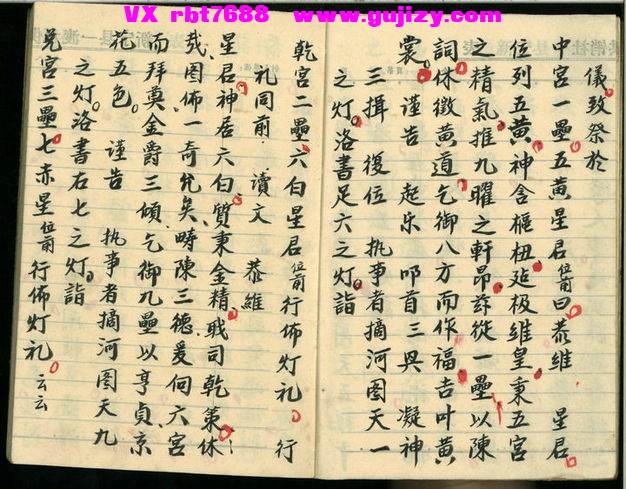 VX rbt7688 www.gujizy.com
儀致祭於
中宮一壘五黃星君位前曰恭維 星君
位列五黃神含樞杻延极維皇秉五宮
之精氣推九曜之軒昂茲從一壘以陳
詞休徵黃道乞御八方而作福吉叶黃
裳 謹告 起乐 叩首三興 凝神
三揖 復位 执事者摘河图天一
之灯洛書足六之灯詣
乾宮二壘六白星君位前行佈灯礼 行
礼同前 讀文 恭維
星君神居六白質秉金精職司乾策休
哉图佈一奇允矣畴陳三德爰伺六宮
而拜奠金爵三傾乞御九壘以亨貞京
花五色 謹告 执事者摘河图天九
之灯洛書右七之灯詣
兌宮三壘七赤星位前行佈灯礼云云